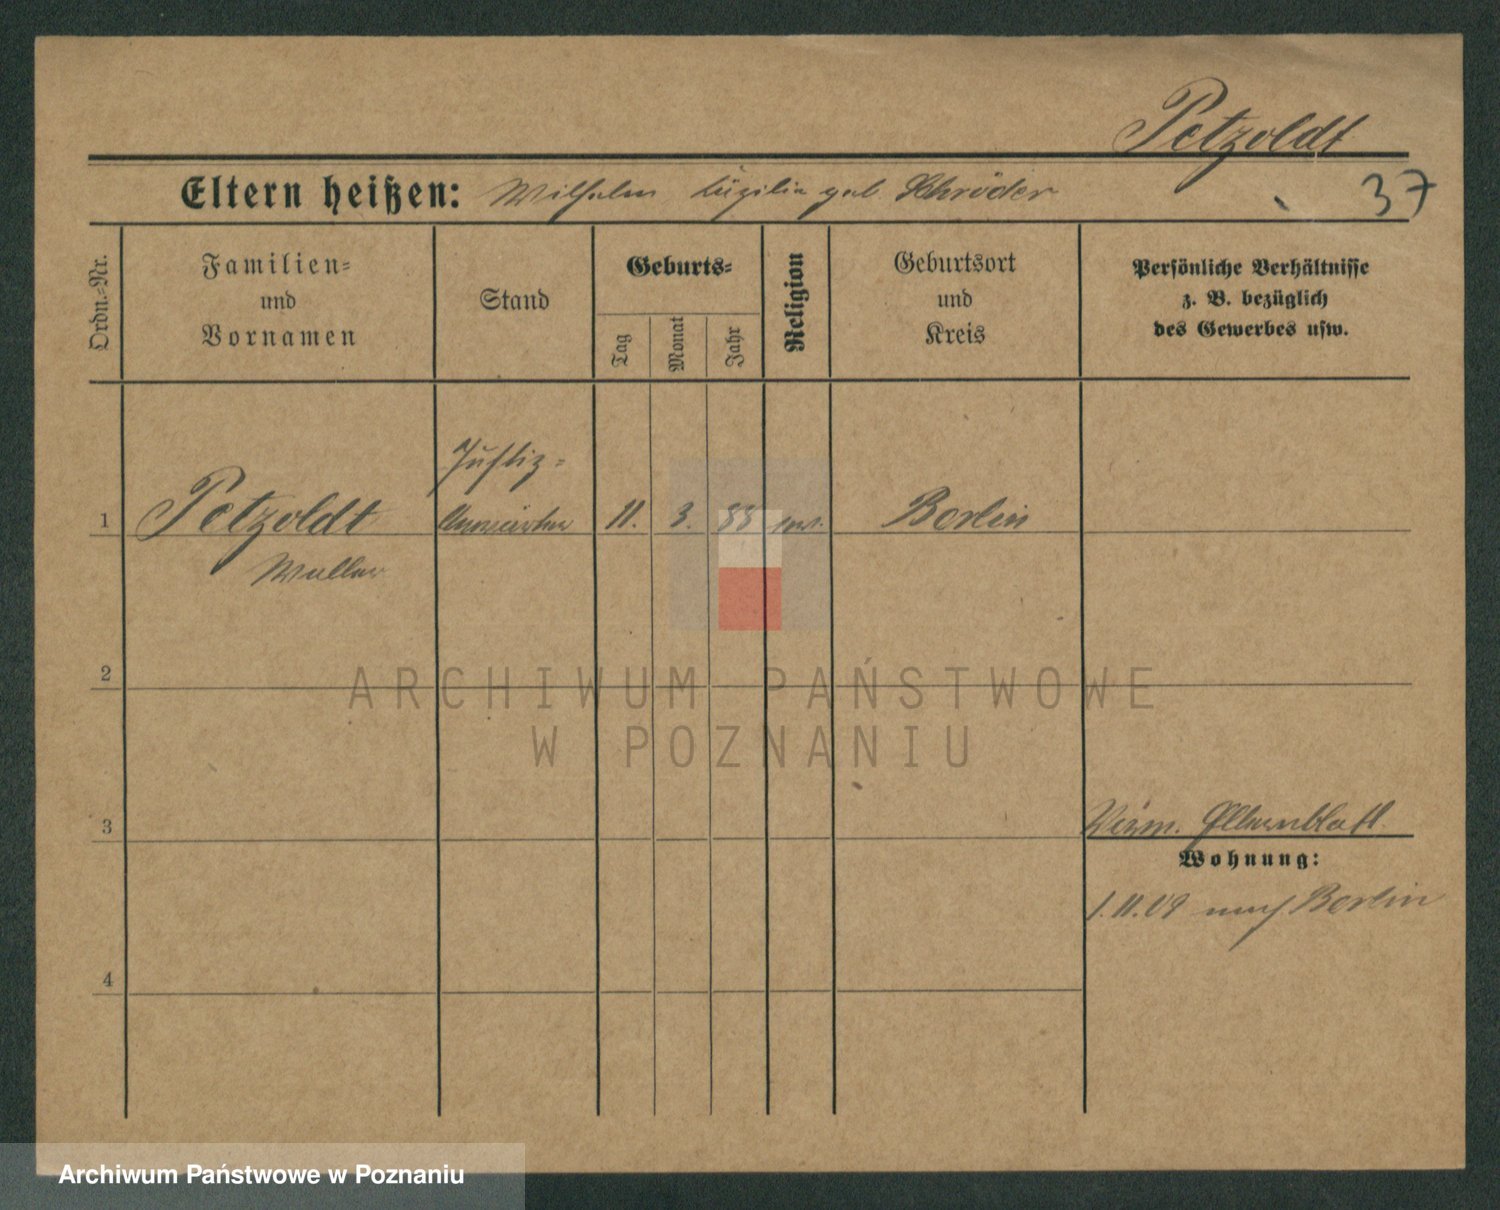 Petzoldt
Eltern heißen: Wilhelm, geb. Schröder
37
Ordn.=Nr.
Familien=
und
Vornamen
Stand
Geburts=
Tag
Monat
Jahr
Religion
Geburtsort
und
Kreis
Persönliche Verhältnisse
z. B. bezüglich
des Gewerbes usw.
Justiz=
1 Petzoldt Anwärter 11. 3. 88 ev. Berlin
Walter
2
ARCHIWUM PAŃSTWOWE
W POZNANIU
3
Elternblatt
Wohnung:
1.11.09 nach Berlin
4
Archiwum Państwowe w Poznaniu